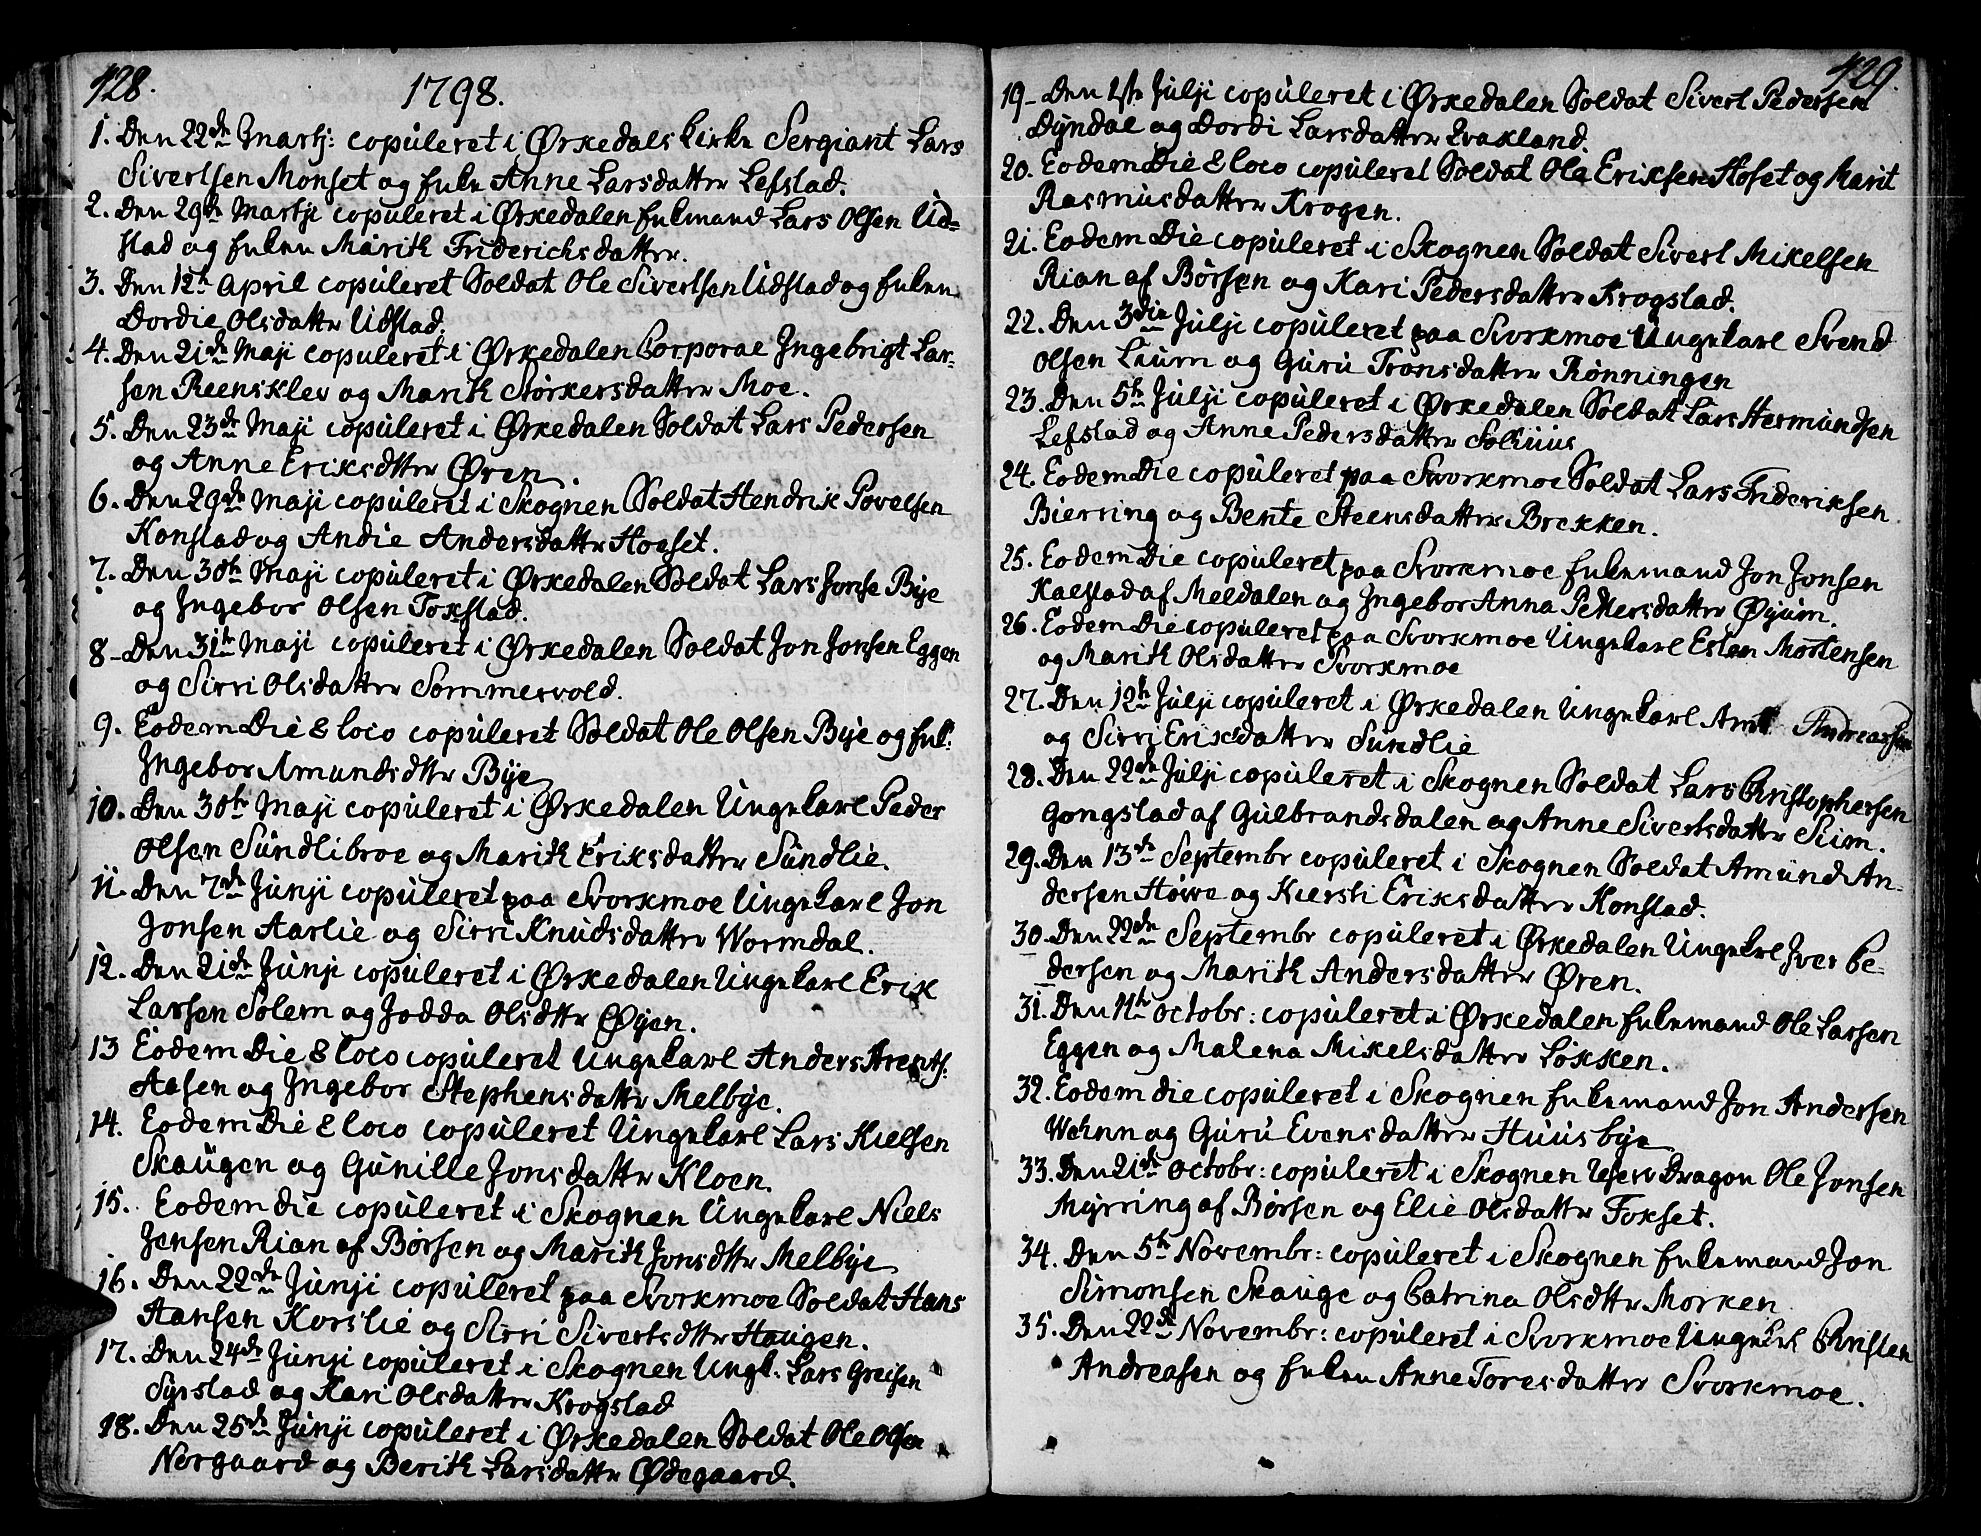 428.
1798.
1. Den 22de Martj: copuleret i Ørkedals Kirke Sergiant Lars
Sivertsen Monset og Enke Anne Larsdatter Lefstad.
2. Den 29de Martji copuleret i Ørkedalen Enkemand Lars Olsen Ud-
stad og Enken Marith Friderichsdatter.
3. Den 12te April copuleret Soldat Ole Sivertsen Udstad og Enken
Dordie Olsdattr Udstad.
4. Den 21de Maji copuleret i Ørkedalen Corporal Ingebrigt Lar-
sen Reensklev og Marith Størkersdatter Moe.
5. Den 23de Maji copuleret i Ørkedalen Soldat Lars Pedersen
og Anne Eriksdttr Øren.
6. Den 29de Maji copuleret i Skognen Soldat Hendrik Povelsen
Konstad og Andie Andersdatter Hoeset.
7. Den 30te Maji copuleret i Ørkedalen Soldat Lars Jonse Bye
og Ingebor Olsen Tokstad.
8 - Den 31te Maji copuleret i Ørkedalen Soldat Jon Jonsen Eggen
og Sirri Olsdatter Sommervold.
9. Eodem Die & loco copuleret Soldat Ole Olsen Bye og Enk:
Ingebor Amundsdttr Bye
10. Den 30te Maji copuleret i Ørkedalen Ungekarl Peder
Olsen Sundlibroe og Marith Eriksdatter Sundlie.
11. Den 7de Junji copuleret paa Svorkmoe Ungekarl Jon
Jonsen Aarlie og Sirri Knudsdatter Wormdal.
12. Den 21de Junji copuleret i Ørkedalen Ungekarl Erik
Larsen Solem og Jodda Olsdttr Øyen.
13 Eodem Die & loco copuleret Ungekarl Anders Arents:
Aasen og Ingebor Stephensdattr Melbye.
14. Eodem Die & loco copuleret Ungekarl Lars Kielsen
Skaugen og Gunille Jonsdattr Kloen.
15. Eodem die copuleret i Skognen Ungekarl Niels
Jensen Rian af Børsen og Marith Jonsdttr Melbye
16. Den 22de Junji copuleret paa Svorkmoe Soldat Hans
Hansen Korslie og Sirri Sivertsdttr Haugen.
17. Den 24de Junji copuleret i Skognen Ungk: Lars Greisen
Syrstad og Kari Olsdatter Krogstad
18. Den 25de Junji copuleret i Ørkedalen Soldat Ole Olsen
Norgaard og Berith Larsdattr Ødegaard.
429.
19 - Den 2de Julji copuleret i Ørkedalen Soldat Sivert Pedersen
Dyndal og Dordi Larsdatter Evakland.
20. Eodem Die & loco copuleret Soldat Ole Eriksen Hoset og Marit
Rasmusdatter Krogen.
21. Eodem Die copuleret i Skognen Soldat Sivert Mikelsen
Rian af Børsen og Kari Pedersdatter Krogstad.
22. Den 3die Julji copuleret paa Svorkmoe Ungekarl Svend
Olsen Laurn og Guru Tronsdatter Rønningen
23. Den 5te Julji copuleret i Ørkedalen Soldat Lars Hermundsen
Lefstad og Anne Pedersdatter Solhuus
24. Eodem Die copuleret paa Svorkmoe Soldat Lars Frideriksen
Bierring og Bente Steensdatter Brekken.
25. Eodem Die copuleret paa Svorkmoe Enkemand Jon Jonsen
Kalstad af Meldalen og Ingebor Anna Pettersdatter Øyum.
26. Eodem Die copuleret paa Svorkmoe Ungekarl Esten Mortensen
og Marith Olsdatter Svorkmoe
27. Den 12te Julji copuleret i Ørkedalen Ungekarl Arnt Andreassen
og Sirri Eriksdatter Sundlie
28. Den 22de Julji copuleret i Skognen Soldat Lars Christophersen
Gongstad af Gulbrandsdalen og Anne Sivertsdatter Seim.
29. Den 13de Septembr copuleret i Skognen Soldat Amund An-
dersen Howe og Kiersti Eriksdatter Konstad.
30. Den 22de Septembr copuleret i Ørkedalen Ungekrl Iver Pe-
dersen og Marith Andersdatter Øren.
31. Den 11te Octobr: copuleret i Ørkedalen Enkemand Ole Larsen
Eggen og Malena Mikelsdatter Løkken.
32. Eodem die copuleret i Skognen Enkemand Jon Andersen
Wehnn og Guru Evensdatter Huusbye
33. Den 21de Octobr: copuleret i Skognen Dragon Ole Jonsen
Myrring af Børsen og Elie Olsdatter Foxset.
34. Den 5te Novembr: copuleret i Skognen Enkemand Jon
Simonsen Skauge og Catrina Olsdttr Morken
35. Den 22de Novembr: copuleret i Svorkmoe Ungekrl Christen
Andreasen og Enken Anne Toresdatter Svorkmoe.